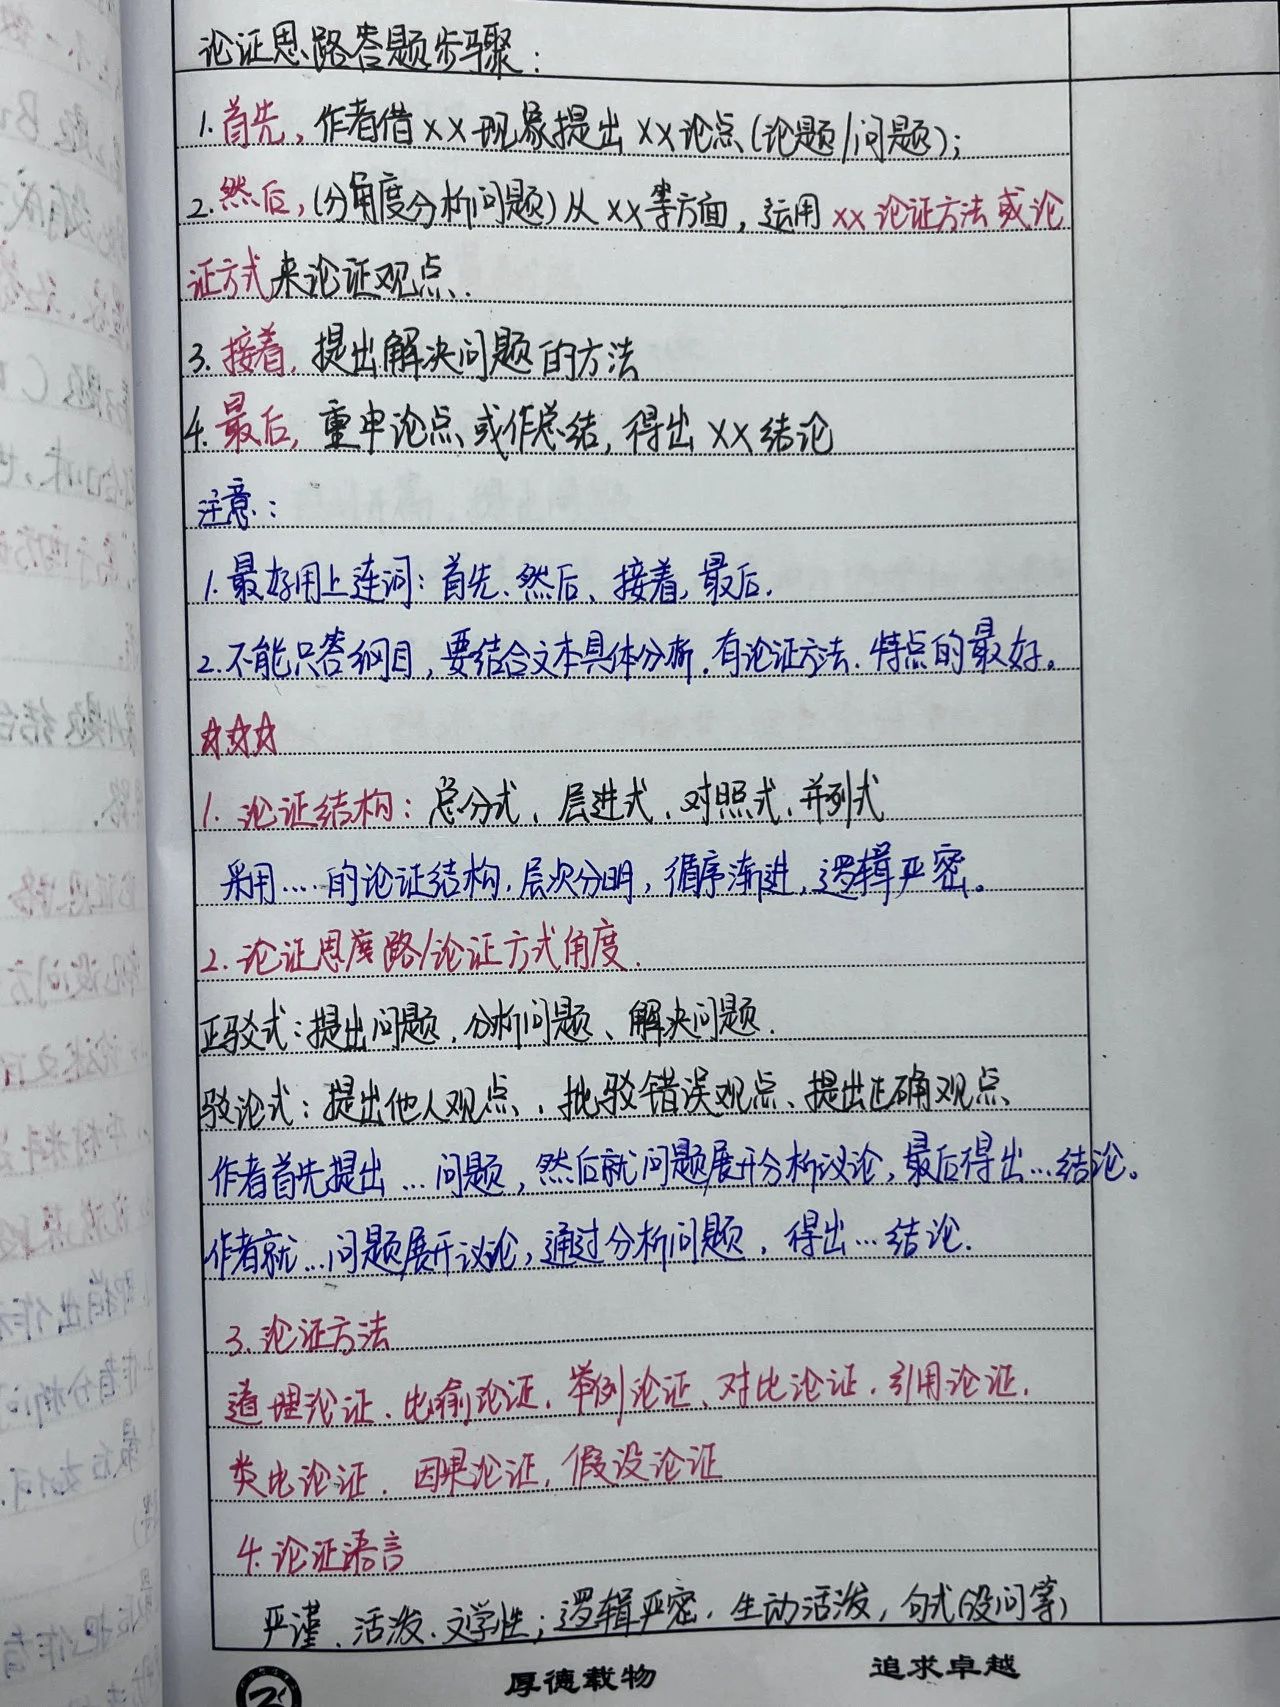 论证思路答题步骤：
1. 首先，作者借××现象提出××论点(论题/问题)；
2. 然后，(分角度分析问题)从××等方面，运用××论证方法或论
证方式来论证观点.
3. 接着，提出解决问题的方法
4. 最后，重申论点、或作总结，得出××结论
注意：
1. 最好用上连词：首先、然后、接着，最后.
2. 不能只答纲目，要结合文本具体分析，有论证方法、特点的最好。
☆☆☆
1. 论证结构：总分式、层进式、对照式、并列式
采用……的论证结构，层次分明，循序渐进，逻辑严密。
2. 论证思度路/论证方式角度.
正驳式：提出问题，分析问题、解决问题.
驳论式：提出他人观点、，批驳错误观点、提出正确观点、
作者首先提出…问题，然后就问题展开分析议论，最后得出…结论。
作者就…问题展开议论，通过分析问题，得出…结论.
3. 论证方法
道理论证、比喻论证、举例论证、对比论证、引用论证、
类比论证、因果论证，假设论证
4. 论证语言
严谨、活泼、文学性；逻辑严密，生动活泼，句式(设问等)
厚德载物
追求卓越